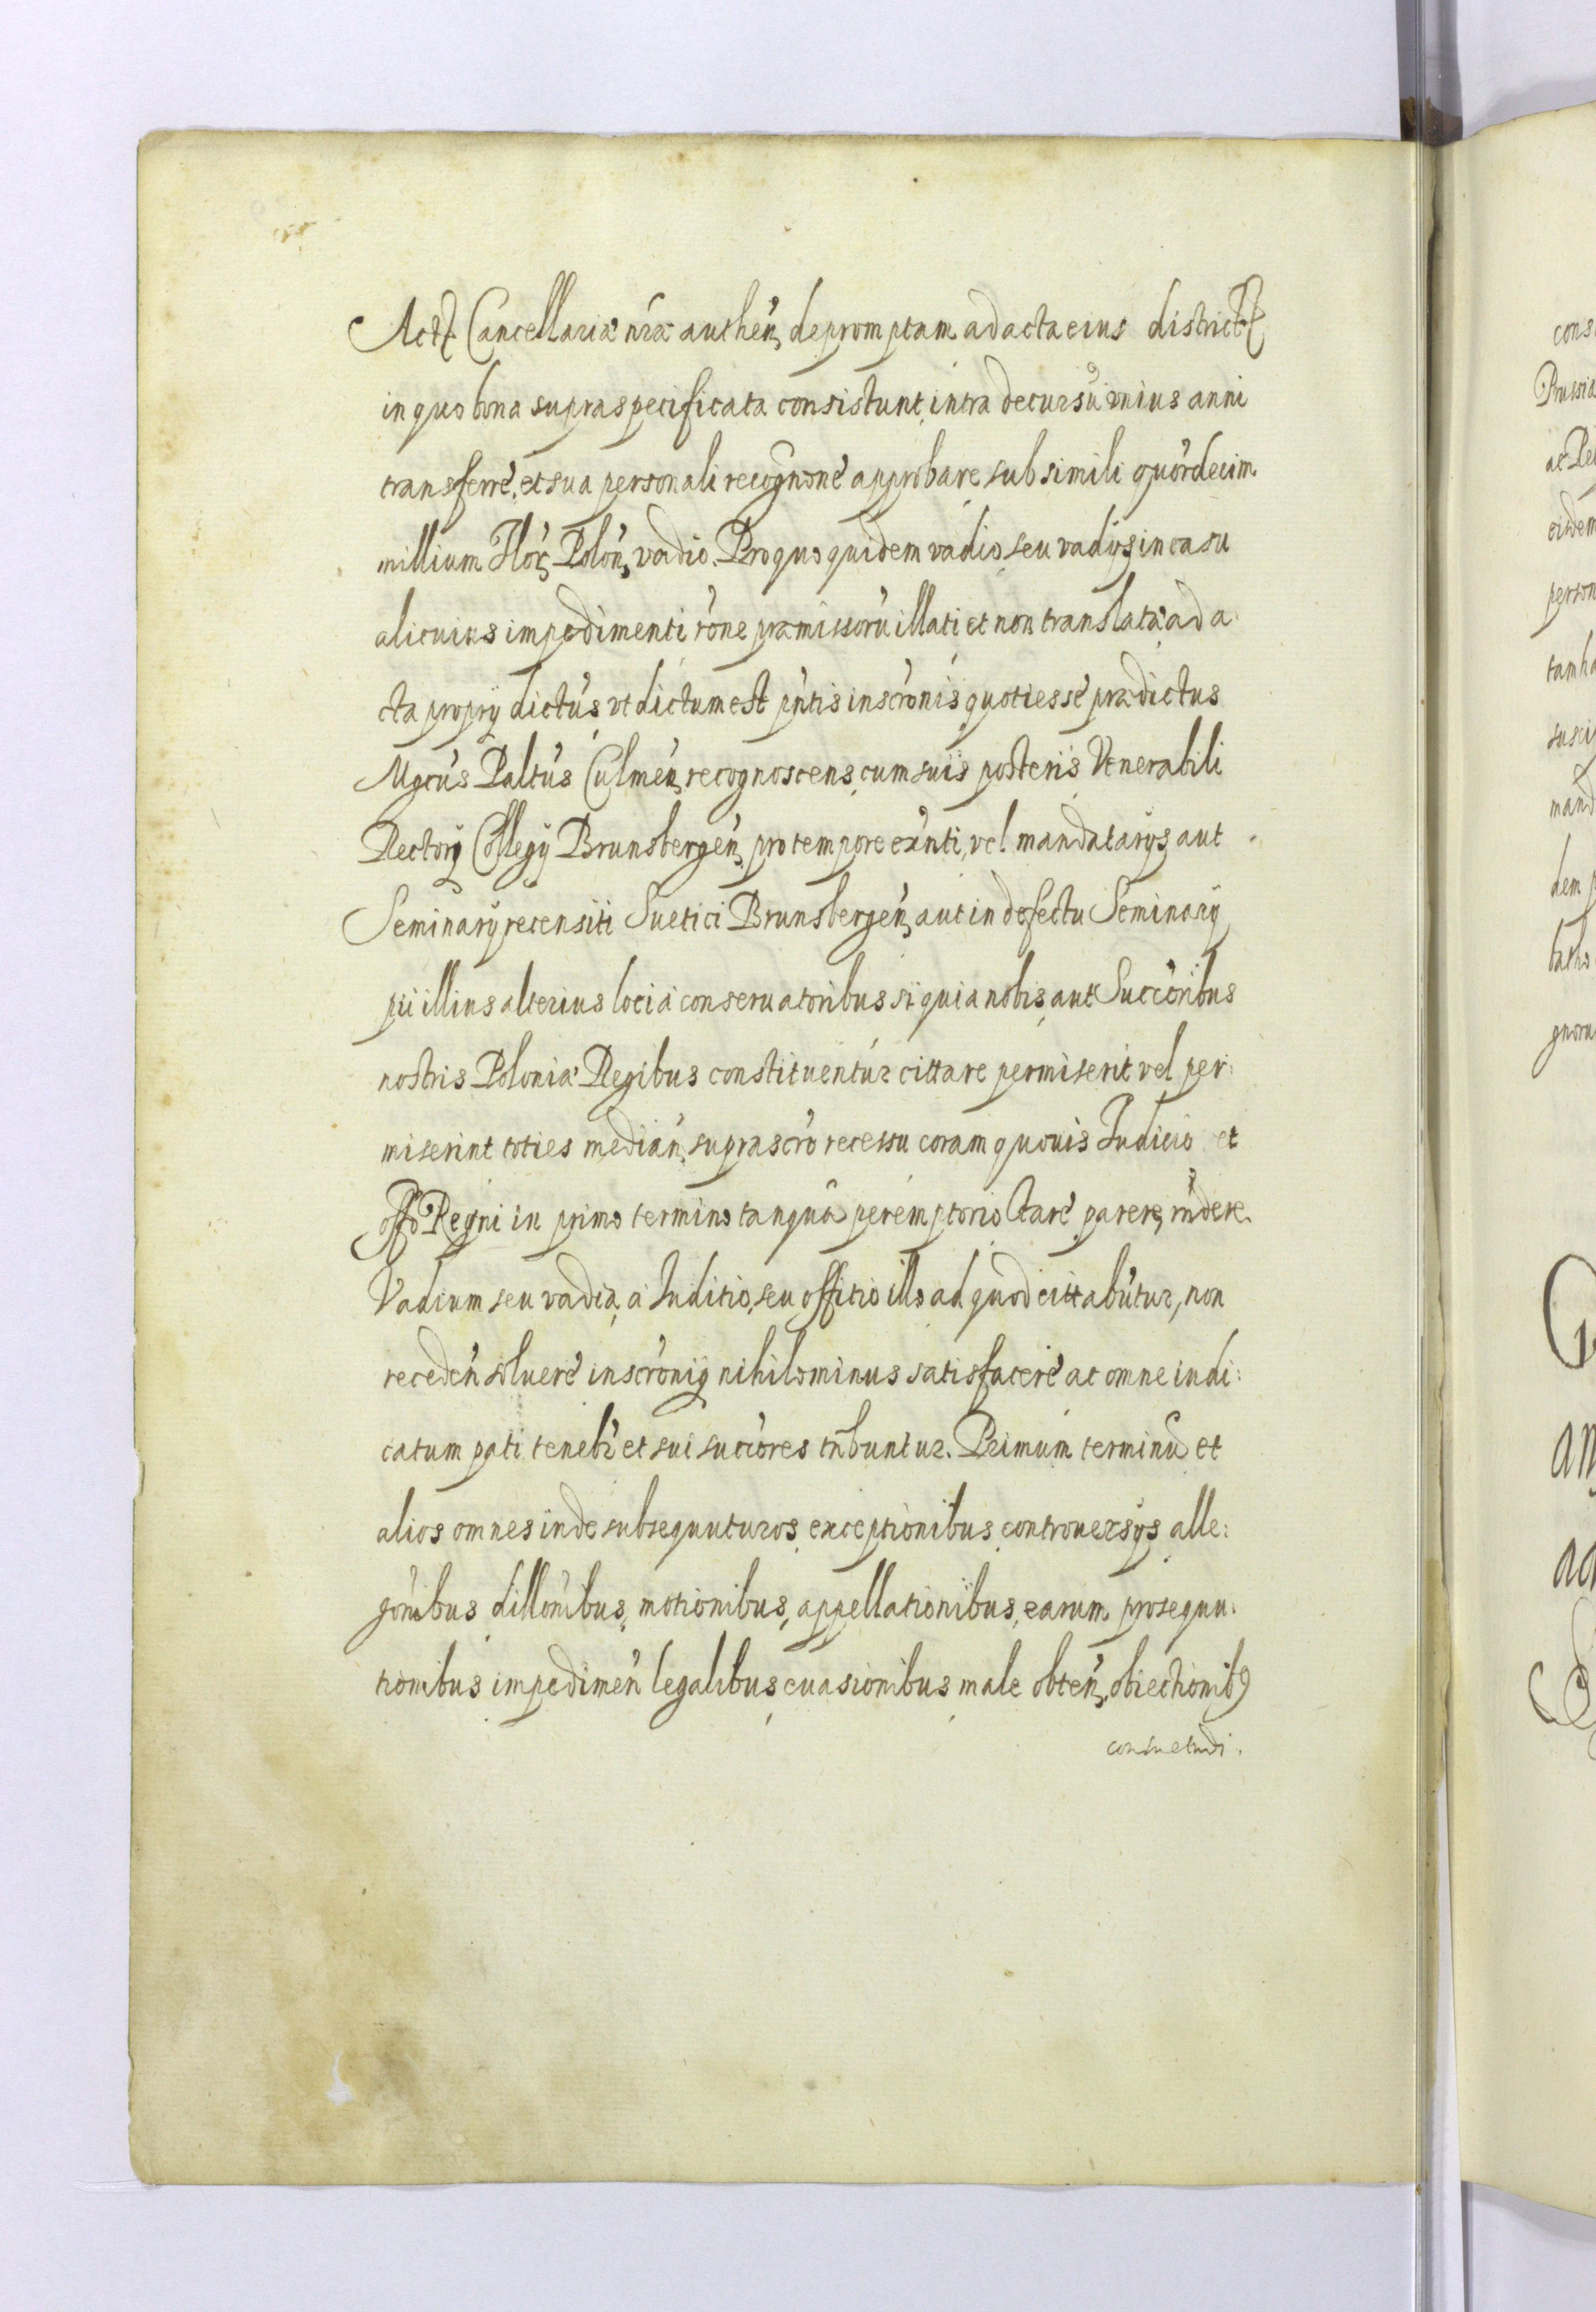 Act Cancellariæ nræ authen depromptam ad acta eius district
in quo bona supraspecificata consistunt, intra decursũ unius anni
transferre, et sua personali recognone approbare sub simili quordecim
millium Flor Polon vadio. Pro quo quidem vadio, seu vadijs, in casu
alicuius impedimenti rone præmissorũ illati et non translatæ ad a
cta proprÿ dictus, vt dictum est pntis inscronis quotiesse prædictus
Mgcus Paltus Culmen recognoscens, cum suis posteris Venerabili
Rectori Collegÿ Brunsbergen pro tempore exnti, vel mandatarÿs, aut
Seminarÿ recensiti Suetici Brunsbergen, aut in defectu Seminarÿ
pii illius alterius loci à conseruatoribus si qui a nobis, aut Succoribus
nostris Poloniæ Regibus constituentur cittare permiserit vel per:
miserint toties median suprascro recessu coram quouis Judicio et
offo Regni in primo termino tanquã peremptorio stare parere, rndere
Vadium seu vadia, à Iuditio, seu offitio illo ad quod cittabutur, non
receden soluere inscronig nihilominus satisfacere ac omne iudi:
catum pati tenebr et sui succores tnbuntur. Primum terminũ et
alios omnes inde subsequuturos, exceptionibus, controuersÿs, alle:
gonibus dillonibus, motionibus, appellationibus, earum prosequu:
tionibus impedimen legalibus, euasionibus male obten, obiectionib9
consuetudi.
cons
Prussia
ac
eisdem
person
tam
susci
mand
dem
an